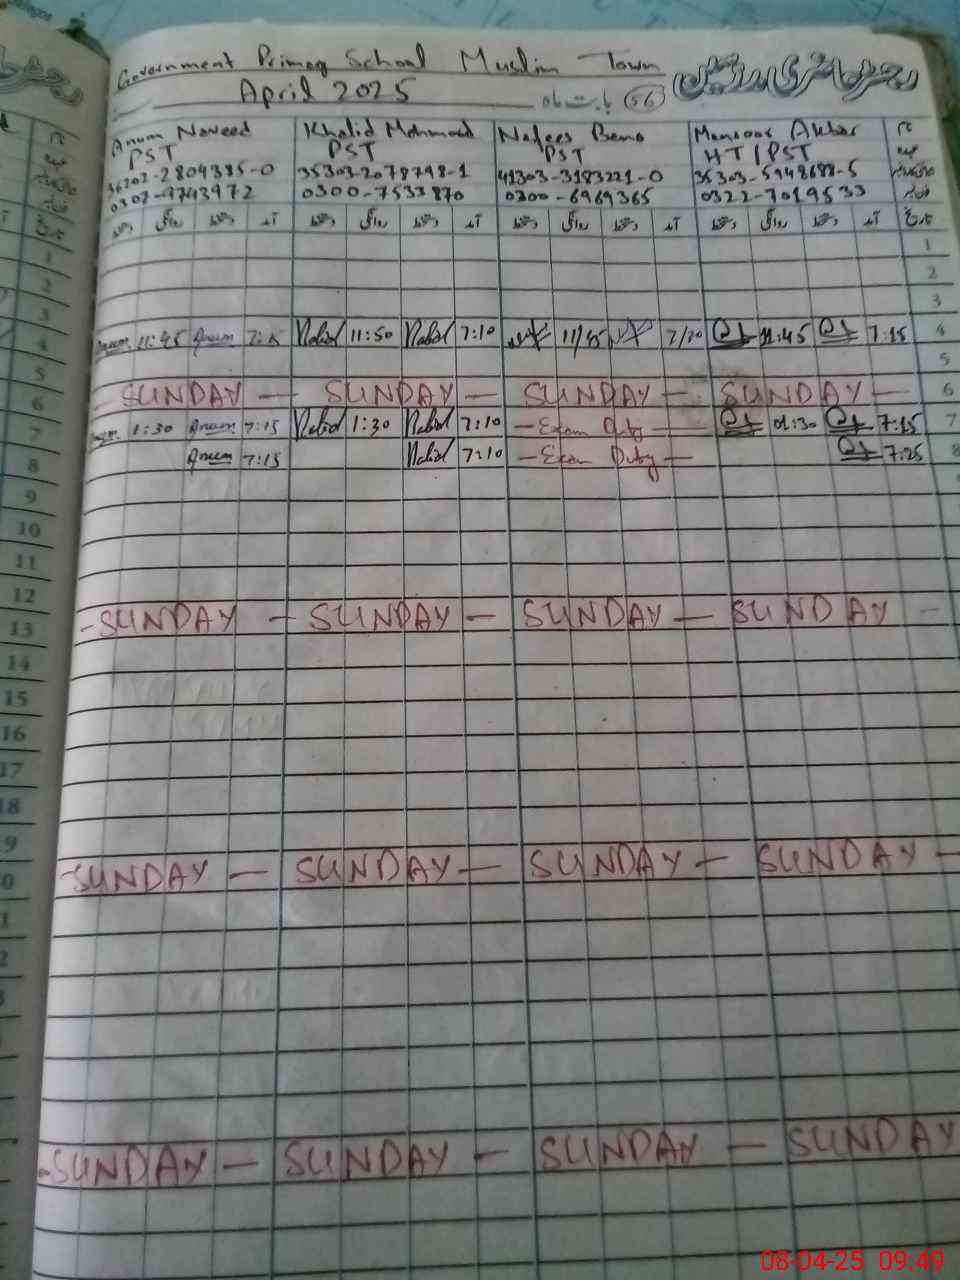 Government Primary School Muslim Town
رجسٹر حاضری مدرسین
April 2025 بابت ماہ 56
Anum Naveed Khalid Mehmood Nafees Bano Mansoor Akbar نام
PST PST PST HT/PST عہدہ
35303-2078798-1 41303-3183221-0 35303-5948688-5
0307-9743972 0300-7533870 0300-6969365 0322-7019533
دستخط روانگی دستخط آمد دستخط روانگی دستخط آمد دستخط روانگی دستخط آمد دستخط روانگی دستخط آمد تاریخ
1
2
3
Anum 11:45 Anum 7:15 11:50 7:10 11/45 7/20 11:45 7:15 4
5
SUNDAY — SUNDAY — SUNDAY — SUNDAY — 6
Anum 1:30 Anum 7:15 1:30 7:10 — Exam Duty — 01:30 7:15 7
Anum 7:15 7:10 — Exam Duty — 7:25 8
9
10
11
12
- SUNDAY — SUNDAY — SUNDAY — SUNDAY — 13
14
15
16
17
18
- SUNDAY — SUNDAY — SUNDAY — SUNDAY —
- SUNDAY — SUNDAY — SUNDAY — SUNDAY
08-04-25 09:49